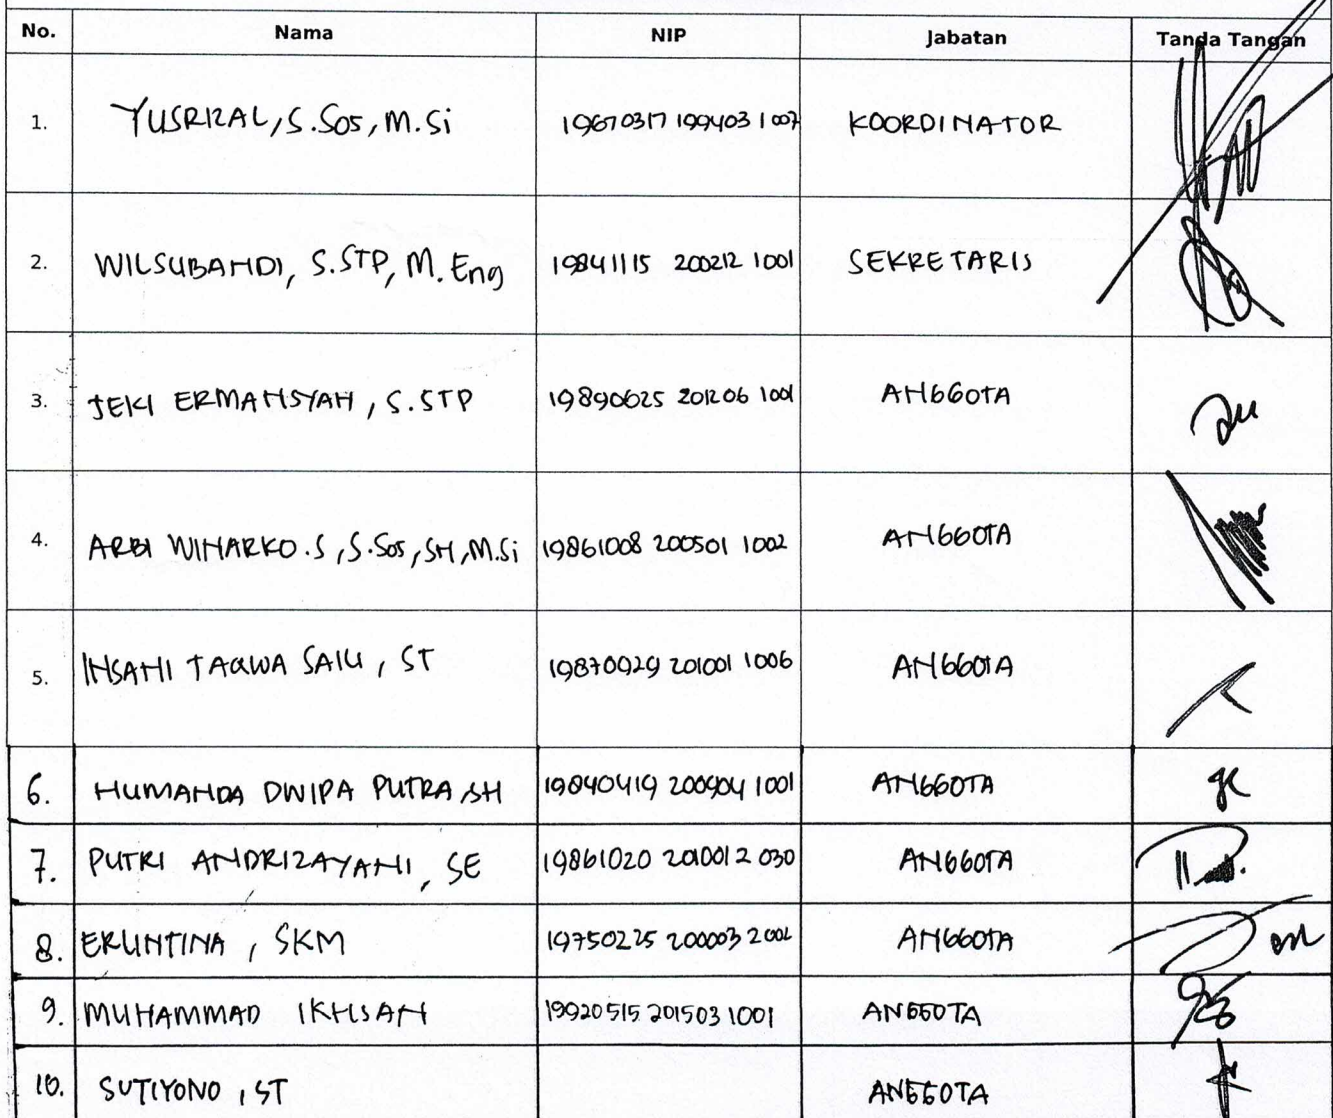 No. Nama NIP Jabatan Tanda Tangan
1. YUSRIZAL, S.Sos, M.Si 19670317 199403 1007 KOORDINATOR
2. WILSUBANDI, S.STP, M.Eng 19841115 200212 1001 SEKRETARIS
3. JEKI ERMANSYAH, S.STP 19890625 201206 1001 ANGGOTA
4. ARBI WINARKO.S, S.Sos, SH, M.Si 19861008 200501 1002 ANGGOTA
5. INSANI TAQWA SAILI, ST 19870929 201001 1006 ANGGOTA
6. HUMANDA DWIPA PUTRA, SH 19840419 200904 1001 ANGGOTA
7. PUTRI ANDRIZAYANI, SE 19861020 201001 2 030 ANGGOTA
8. ERLINTINA, SKM 19750225 200003 2002 ANGGOTA
9. MUHAMMAD IKHLSAN 19920515 201503 1001 ANGGOTA
10. SUTIYONO, ST ANGGOTA